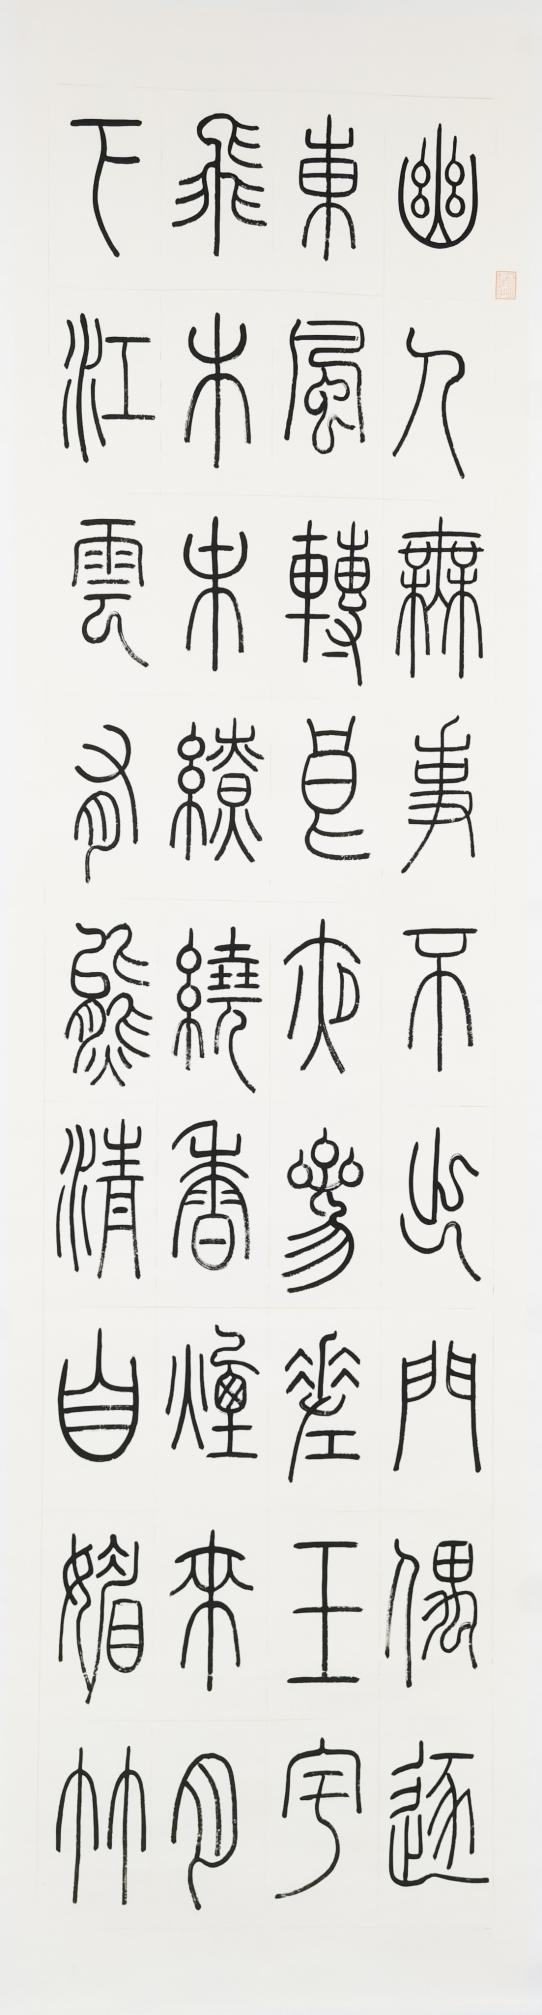 幽人無事不出門偶逐
東風轉良夜參差玉宇
飛木末繚繞香煙來月
下江雲有態清自媚竹